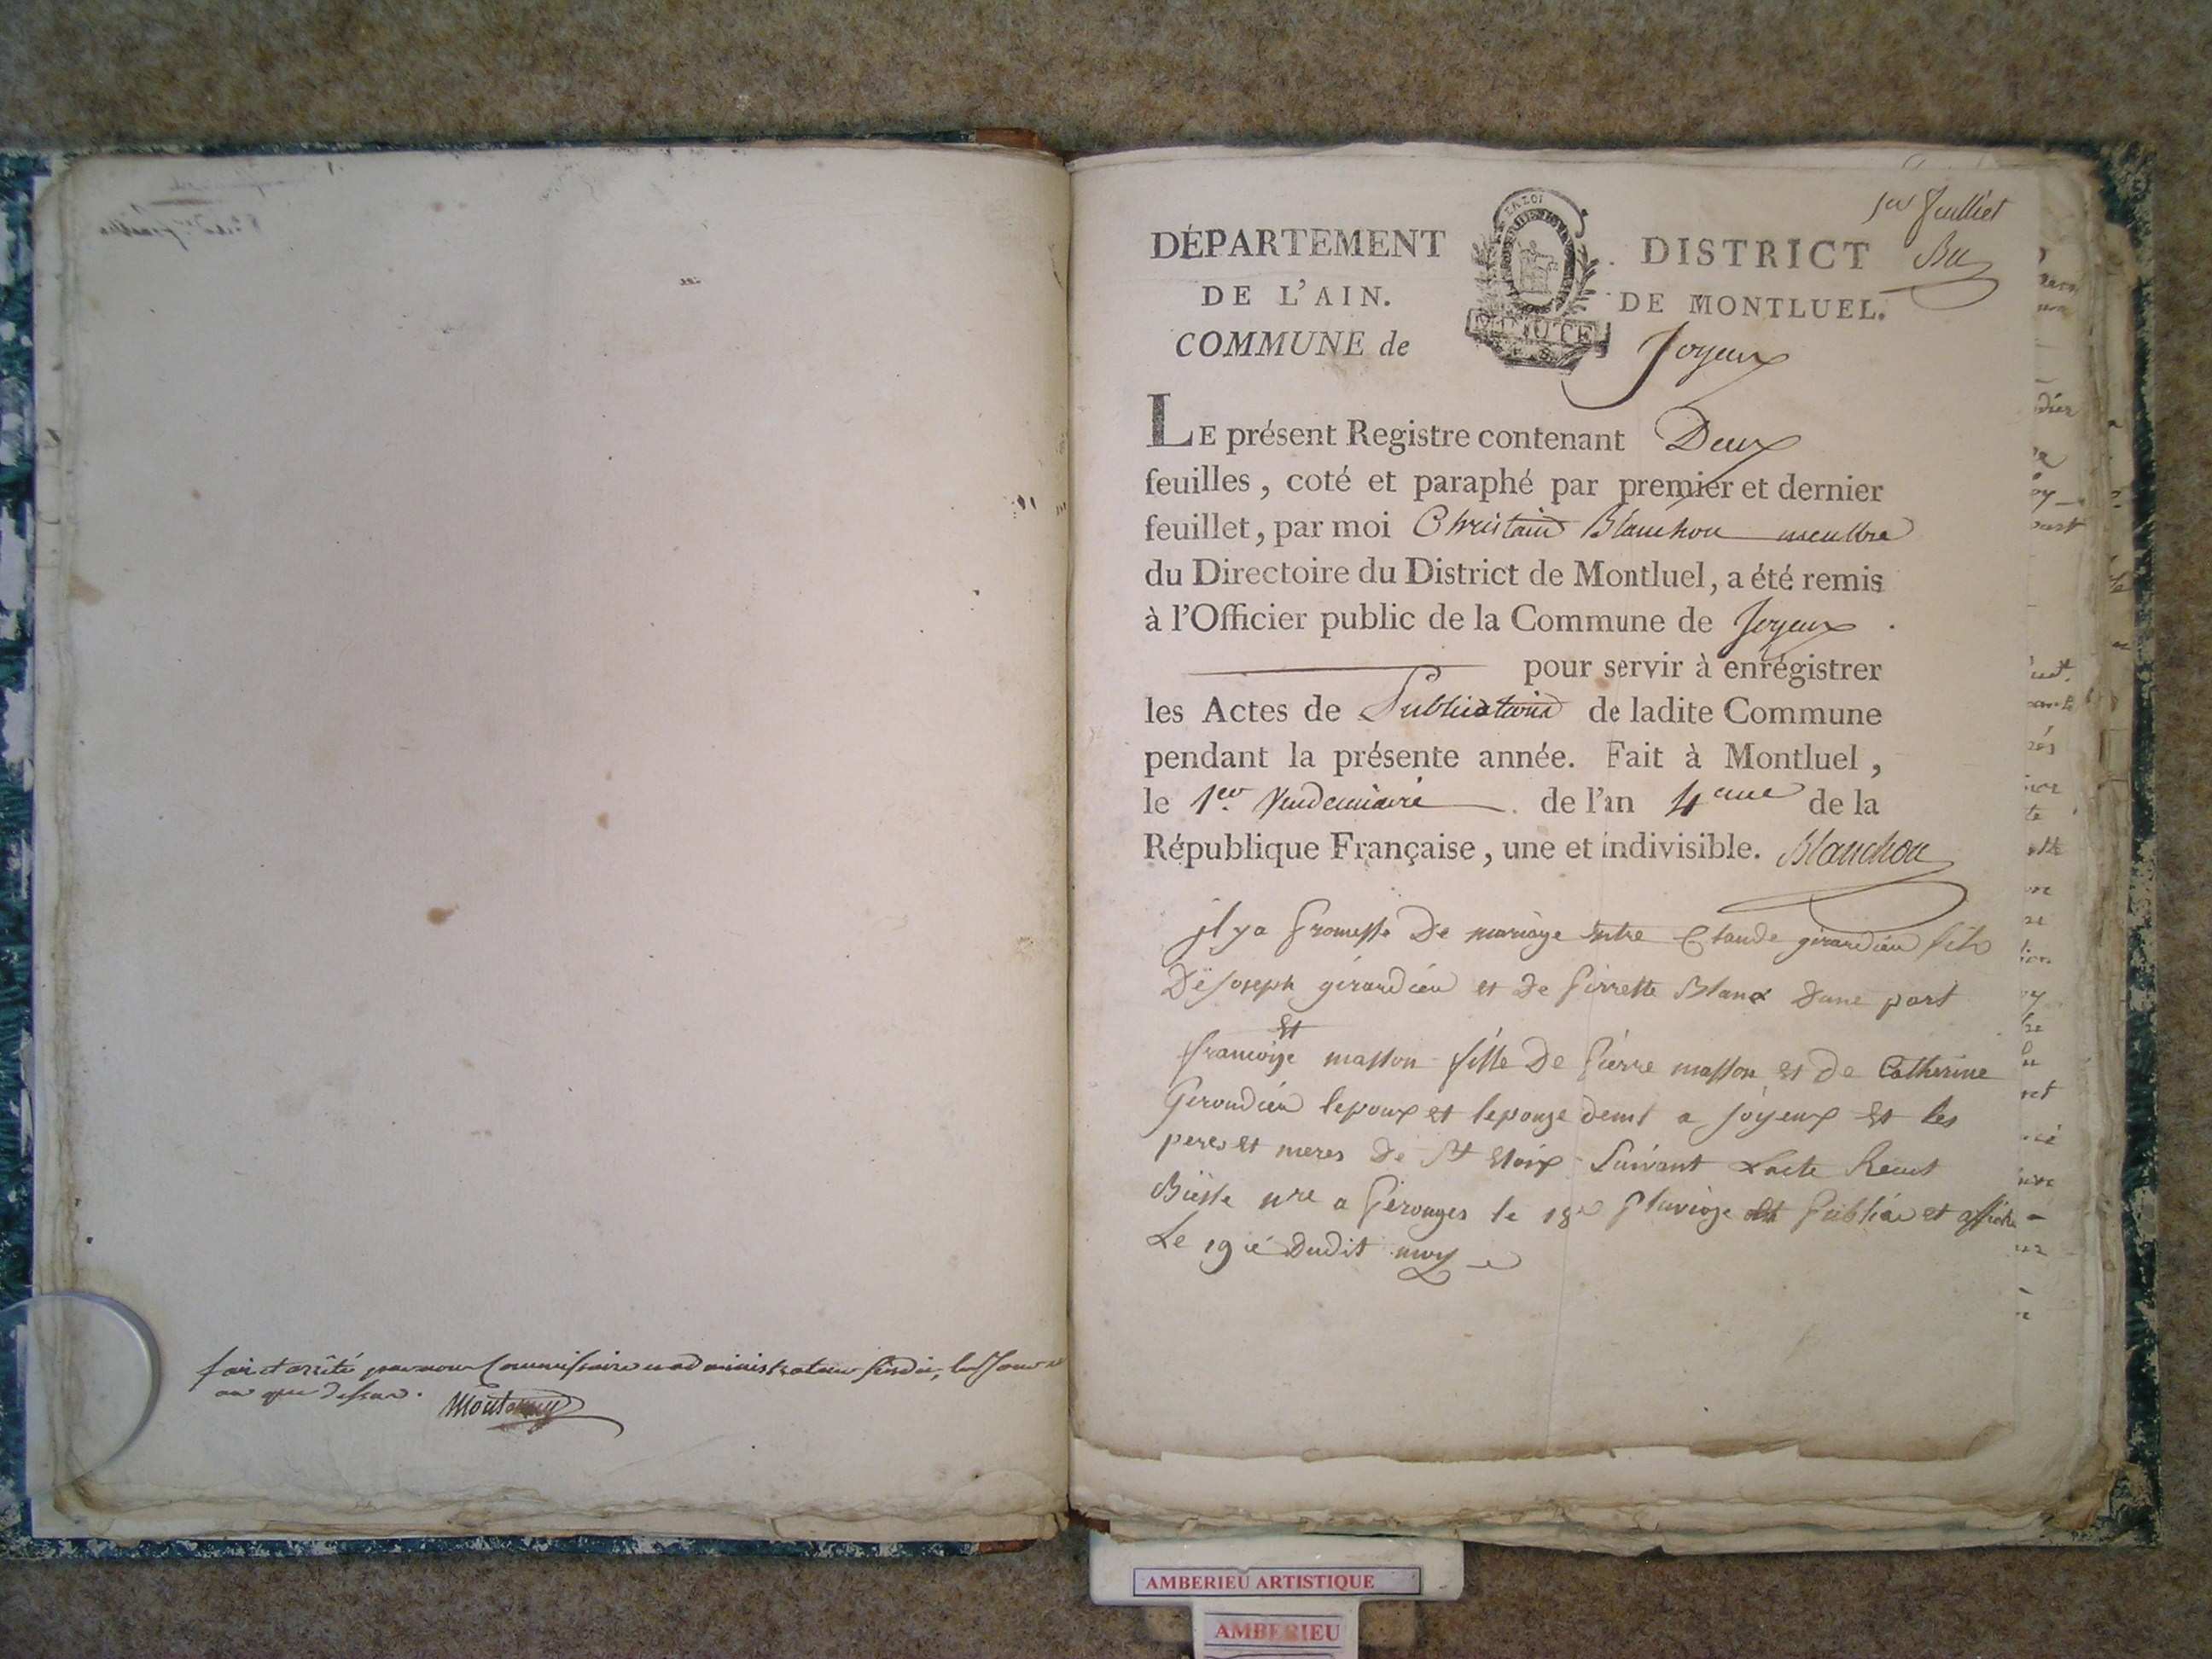 fait et arrêté par nous Commissaire administrateur
an que dessus.
1er feuillet
DÉPARTEMENT
DE L'AIN.
COMMUNE de
MINUTE
DISTRICT
DE MONTLUEL.
Joyeux
LE présent Registre contenant Deux
feuilles, coté et paraphé par premier et dernier
feuillet, par moi Blanchon membre
du Directoire du District de Montluel, a été remis
à l'Officier public de la Commune de Joyeux
pour servir à enrégistrer
les Actes de Publications de ladite Commune
pendant la présente année. Fait à Montluel,
le 1er Vendemiaire de l'an 4eme de la
République Française, une et indivisible. Blanchon
il y a promesse De mariage entre Claude girardien fils
De joseph girardien et de pierrette Blanc dune part
Et
francoise masson fille De pierre masson et de Catherine
lepoux et lepouze demt a joyeux Et les
peres et meres de St Eloix Suivant Lacte Recut
nre a perouges le 18e pluvioze publié et affiché
Le 19 ie Dudit moy
AMBERIEU ARTISTIQUE
AMBERIEU